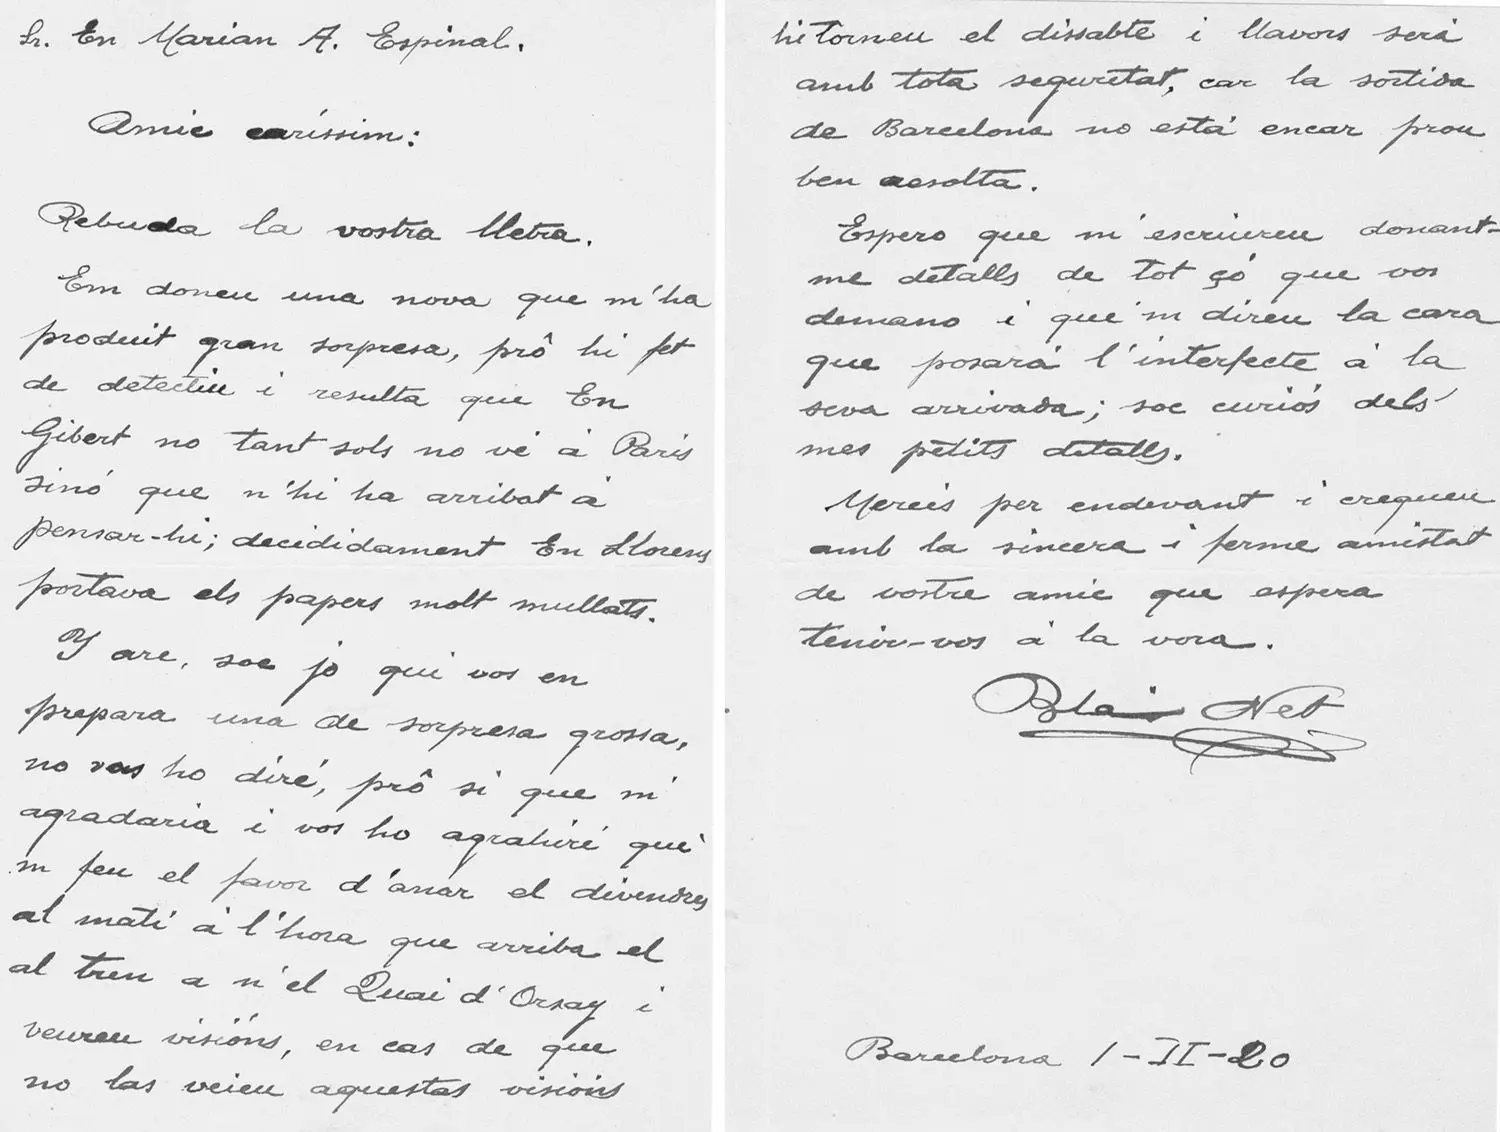 Sr. En Marian A. Espinal.
Amic caríssim:
Rebuda la vostra lletra.
Em doneu una nova que m'ha
produit gran sorpresa, prô hi fet
de detectiu i resulta que En
Gibert no tant sols no vé á Paris
sinó que n'hi ha arribat á
pensar-hi; decididament En Llorens
portava els papers molt mullats.
Y are, soc jo qui vos en
prepara una de sorpresa grossa,
no vos ho diré, prô si que m'
agradaria i vos ho agrahiré que'
m feu el favor d'anar el divendres
al matí á l'hora que arriba el
al tren a n'el Quai d'Orsay i
veureu visións, en cas de que
no las veieu aquestas visións
hi torneu el dissabte i llavors será
amb tota seguretat, car la sortida
de Barcelona no está encar prou
ben resolta.
Espero que m'escriureu donant-
me detalls de tot çó que vos
demano i que'm direu la cara
que posará l'interfecte á la
seva arrivada; soc curiós dels
mes petits detalls.
Mercis per endevant i cregueu
amb la sincera i ferme amistat
de vostre amic que espera
tenir-vos á la vora.
Blai Net
Barcelona 1-II-20